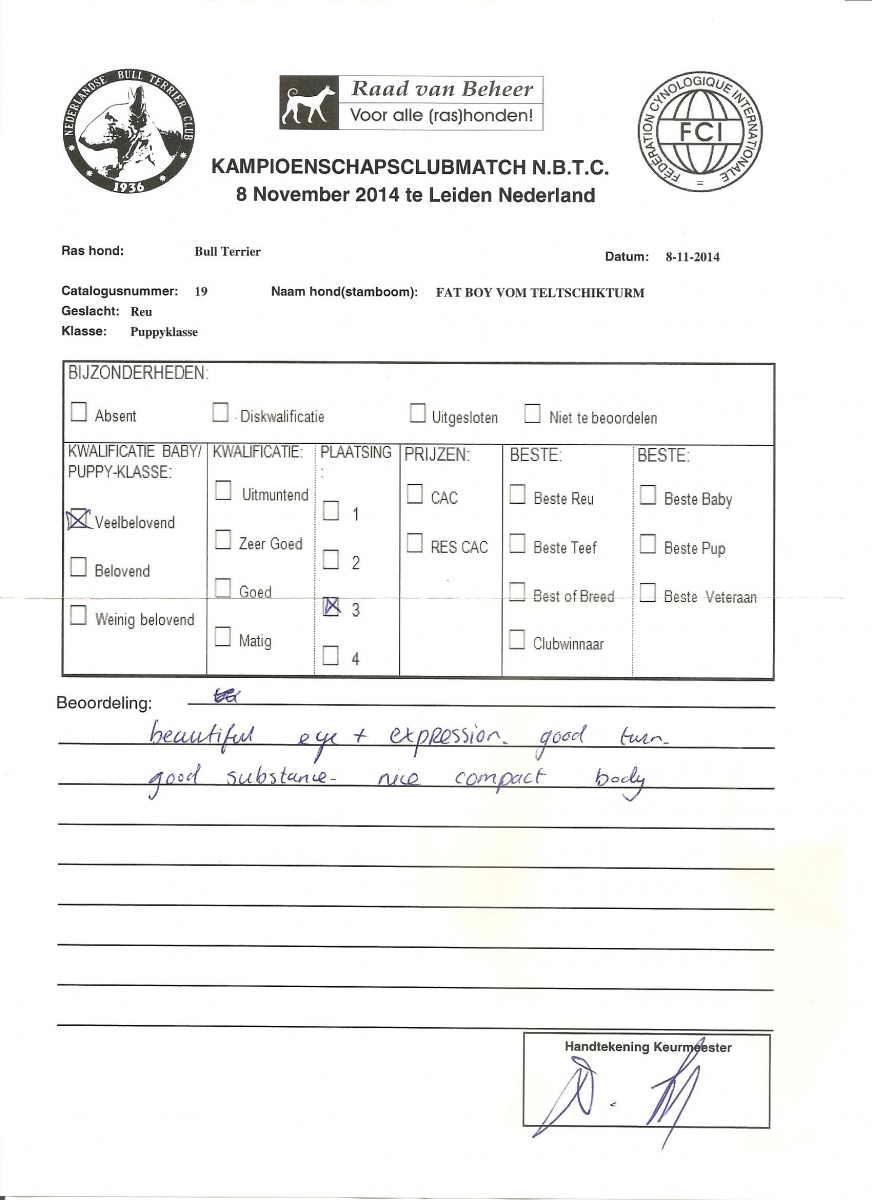 NEDERLANDSE BULL TERRIER CLUB
1936
Raad van Beheer
Voor alle (ras)honden!
FÉDÉRATION CYNOLOGIQUE INTERNATIONALE
FCI
KAMPIOENSCHAPSCLUBMATCH N.B.T.C.
8 November 2014 te Leiden Nederland
Ras hond: Bull Terrier
Datum: 8-11-2014
Catalogusnummer: 19 Naam hond(stamboom): FAT BOY VOM TELTSCHIKTURM
Geslacht: Reu
Klasse: Puppyklasse
BIJZONDERHEDEN:
Absent Diskwalificatie Uitgesloten Niet te beoordelen
KWALIFICATIE BABY/
PUPPY-KLASSE:
Veelbelovend
Belovend
Weinig belovend
KWALIFICATIE:
Uitmuntend
Zeer Goed
Goed
Matig
PLAATSING
:
1
2
3
4
PRIJZEN:
CAC
RES CAC
BESTE:
Beste Reu
Beste Teef
Best of Breed
Clubwinnaar
BESTE:
Beste Baby
Beste Pup
Beste Veteraan
Beoordeling:
beautiful eye + expression. good turn.
good substance- nice compact body
Handtekening Keurmeester